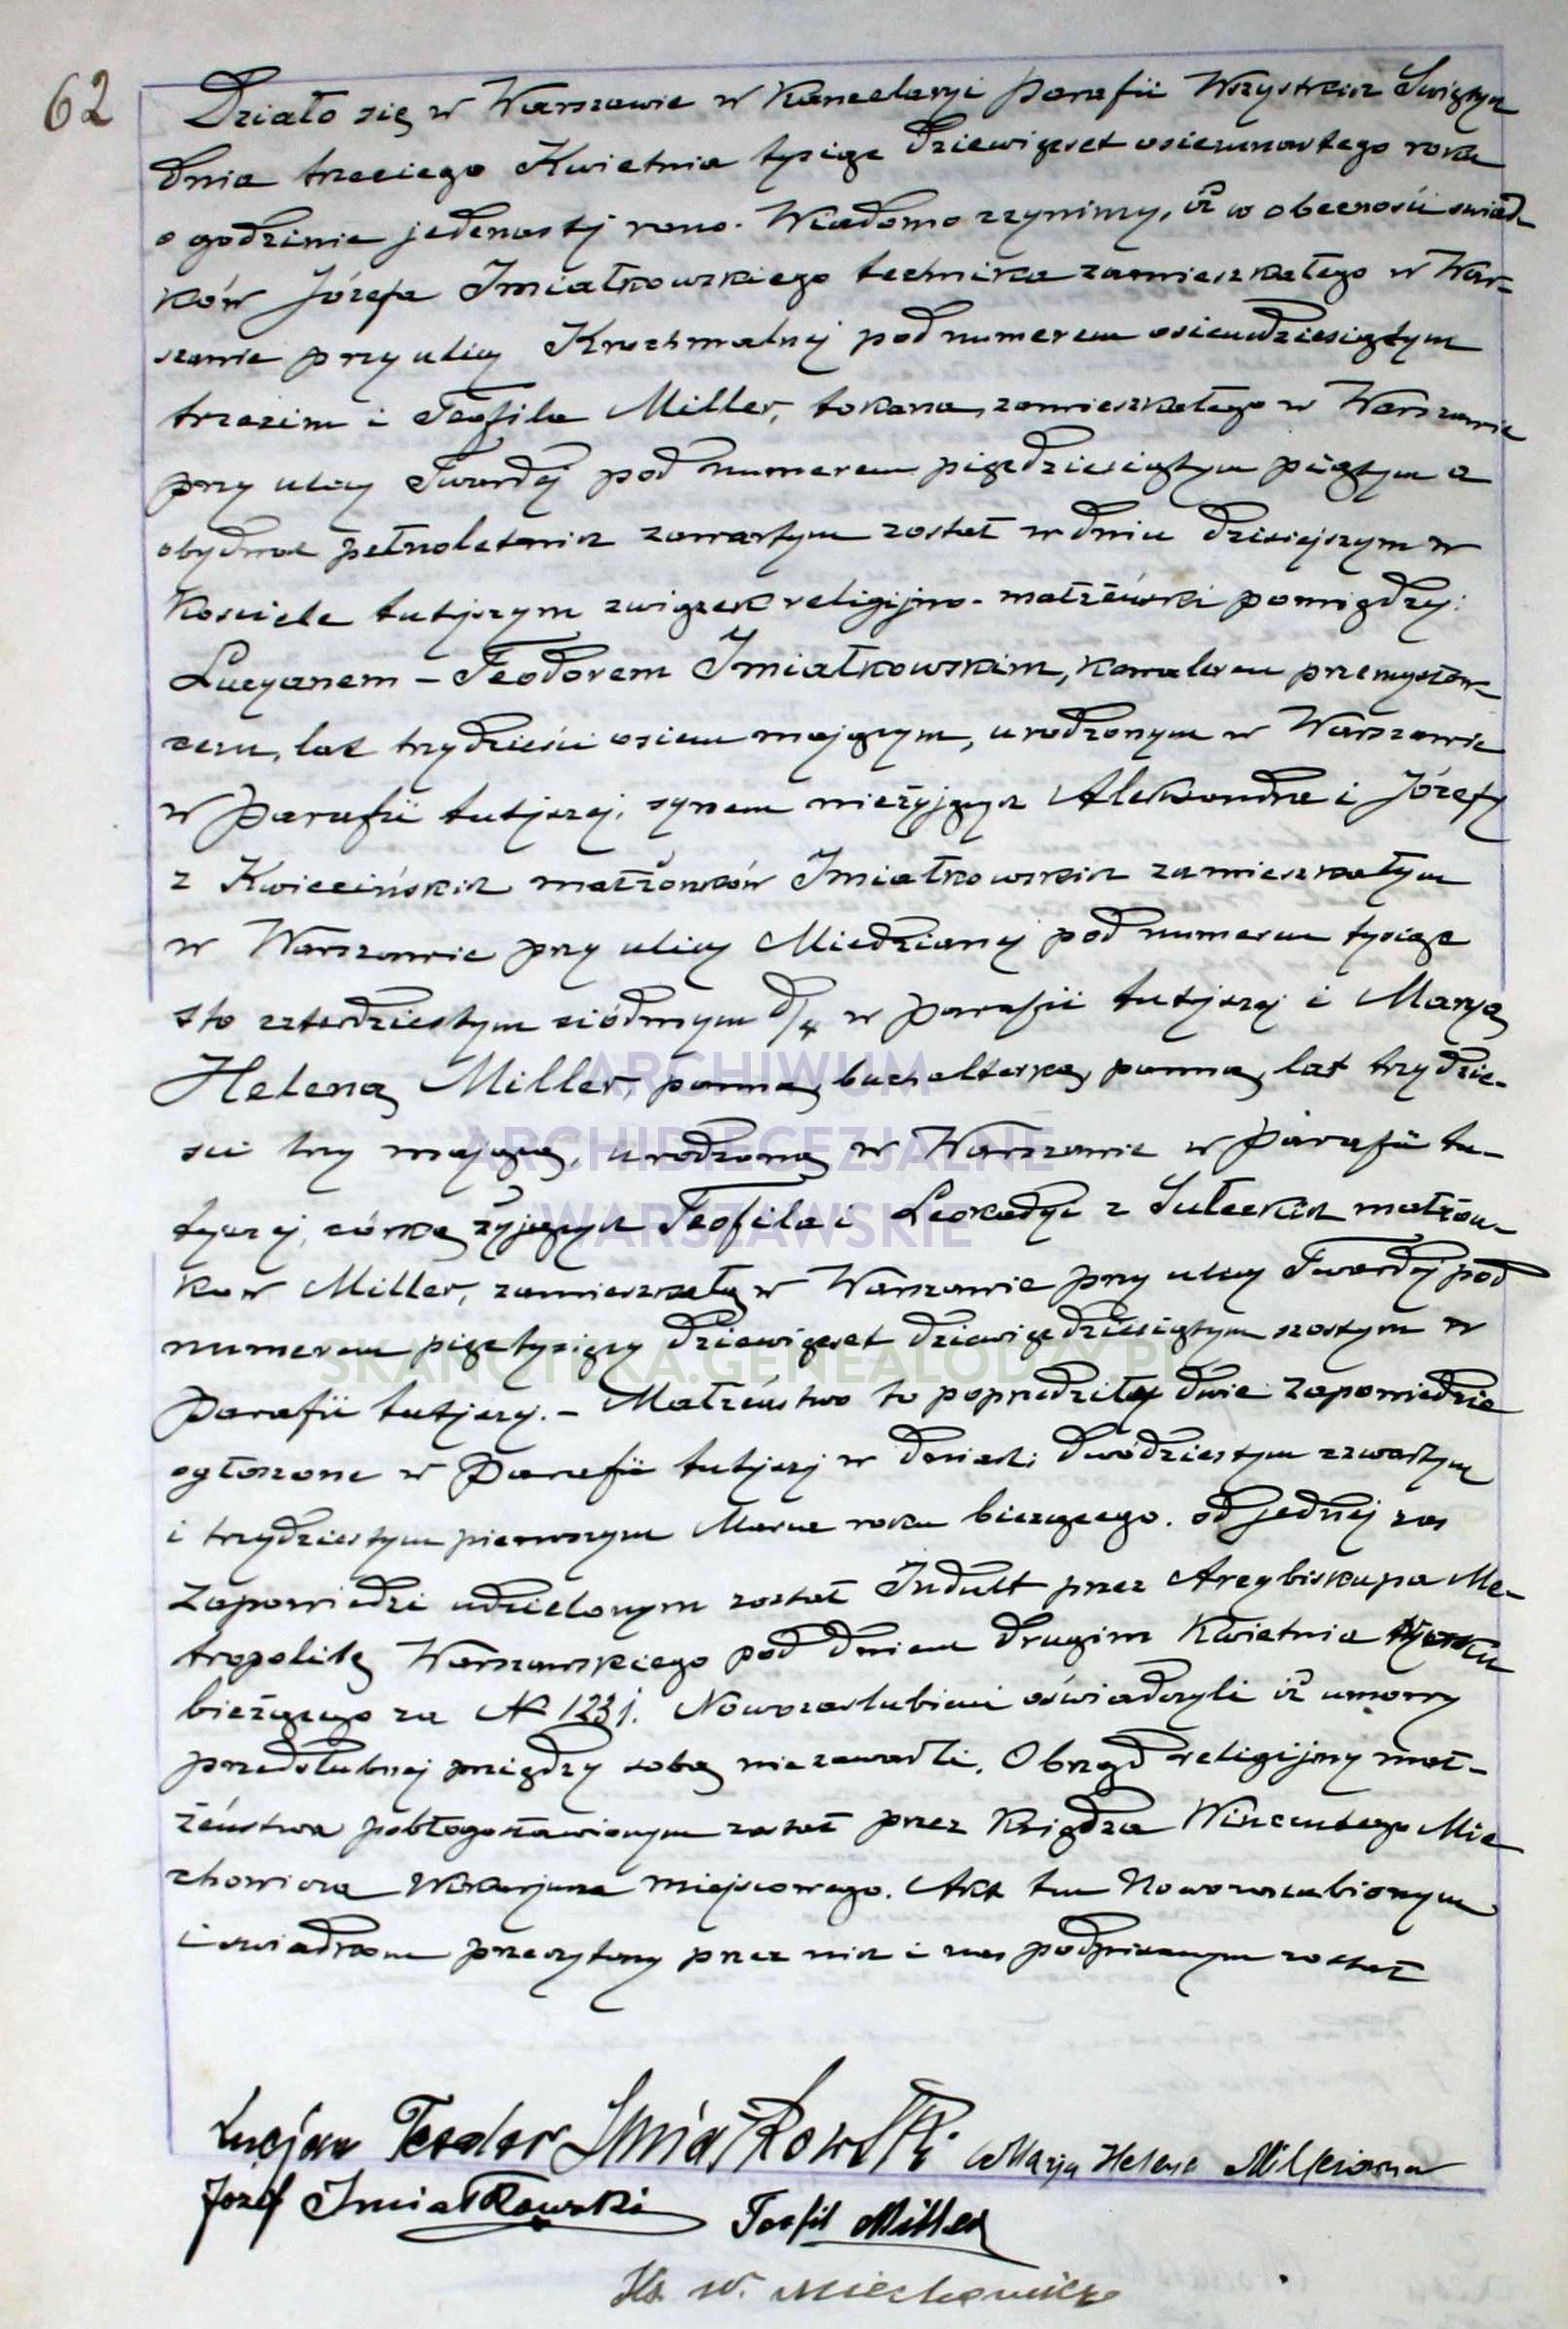 62
Działo się w Warszawie w Kancelaryi Parafii Wszystkich Świętych
dnia trzeciego Kwietnia tysiąc dziewięset osiemnastego roku
o godzinie jedenastj rano. Wiadomo czynimy, iż w obecności świad-
ków Józefa Imiałkowskiego technika zamieszkałego w War-
szawie przy ulicy Krochmalnej pod numerem osiemdziesiątym
trzecim i Teofila Miller, tokarza, zamieszkałego w Warszawie
przy ulicy Twardej pod numerem pięćdziesiątym piątym a
obydwoch pełnoletnich zawartym został w dniu dzisiejszym w
Kościele tutejszym związek religijno-małżeński pomiędzy:
Lucyanem – Teodorem Imiałkowskim, kawalerem przemysłow-
cem, lat trzydzieści osiem mającym, urodzonym w Warszawie
w Parafii tutejszej, synem nieżyjących Aleksandra i Józefy
z Kwiecińskich małżonków Imiałkowskich zamieszkałym
w Warszawie przy ulicy Miedzianej pod numerem tysiąc
sto czterdziestym siódmym d/4 w Parafii tutejszej i Maryą
Heleną Miller, panną, buchalterką, panną, lat trzydzie-
ści trzy mającą, urodzoną w Warszawie w Parafii tu-
tejszej, córką żyjących Teofila i Leokadyi z Sułeckich małżon-
ków Miller, zamieszkałą w Warszawie przy ulicy Twardej pod
numerem pięć tysięcy dziewięset dziewięćdziesiątym szóstym w
Parafii tutejszej. – Małżeństwo to poprzedziły dwie Zapowiedzie
ogłoszone w Parafii tutejszej w dniach: dwódziestym czwartym
i trzydziestym pierwszym Marca roku bieżącego. od jednej zaś
Zapowiedzi udzielonym został Indult przez Arcybiskupa Me-
tropolitę Warszawskiego pod dniem drugim Kwietnia roku
bieżącego za N 1231. Nowozaślubieni oświadczyli iż umowy
przedślubnej między sobą niezawarli. Obrzęd religijny mał-
żeństwa pobłogosławionym został przez Księdza Wincentego Mie
chowicza Wikarjusza miejscowego. Akt ten Nowozaślubionym
i świadkom przeczytany przez nich i nas podpisanym został
Lucjan Teodor Imiałkowski Marja Helena Millerówna
Józef Imiałkowski Teofil Miller
Ks. W. Miechowicz
ARCHIWUM
ARCHIDIECEZJALNE
WARSZAWSKIE
SKANOTEKA.GENEALODZY.PL